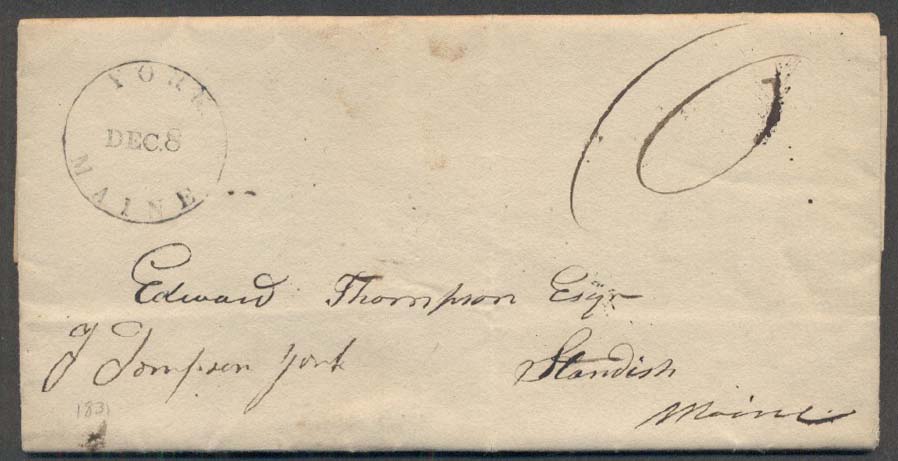 YORK
DEC. 8
MAINE
10
Edward Thompson Esqr
J Tompson York
Standish
Maine
1831